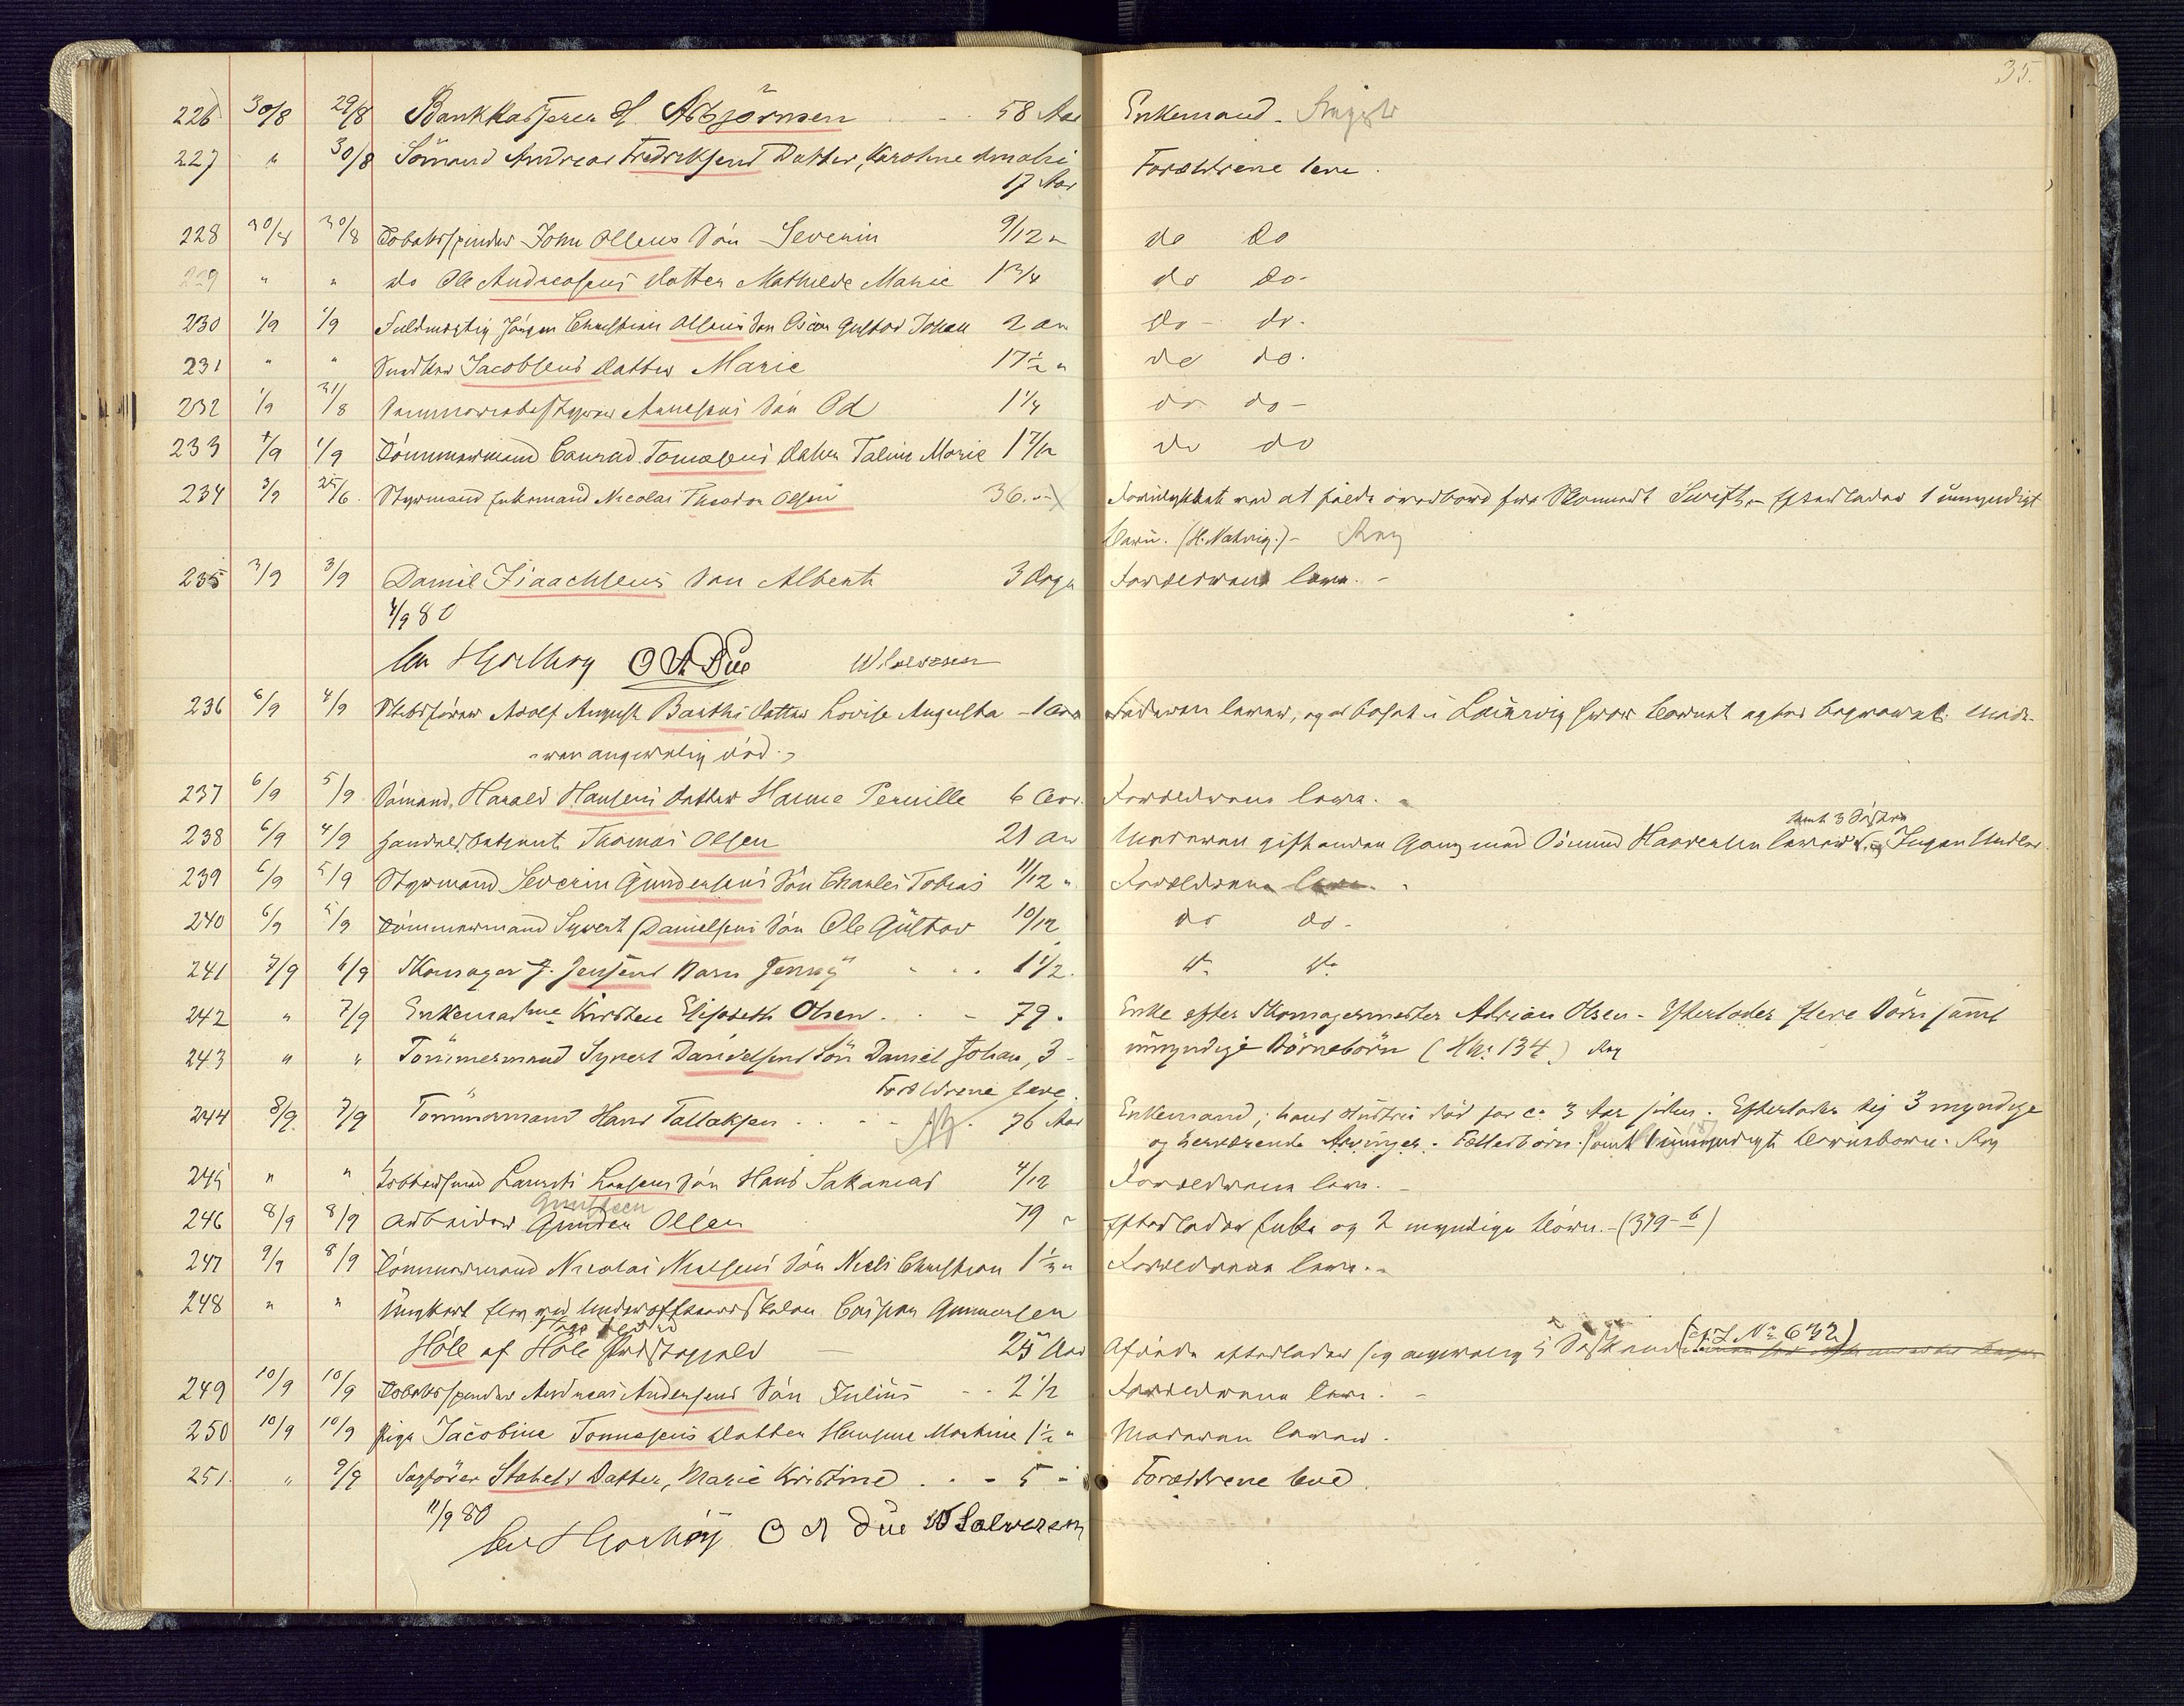 35.
226 30/8 29/8 Bankkasserer A. Asbjörnsen 58 Aar Enkemand.
227 " 30/8 Sömand Andreas Fredriksens Datter, Karoline Amalie Forældrene leve.
17 Aar
228 30/8 30/8 Tobaksspinder John Olsens Sön Severin 9/12 " do do
229 " " do Ole Andreasens Datter Mathilde Marie 1 3/4 do do-
230 1/9 1/9 Fuldmægtig Jörgen Christian Olsens Sön Oscar Gustav Johan 2 Aar do - do.
231 " " Snedker Jacobsens Datter Marie 17 1/2 " do do.
232 1/9 31/8 Aanesens Sön Od 1 1/4 do do-
233 1/9 1/9 Tömmermand Conrad Tomasens Datter Taline Marie 1 7/12 do do
234 3/9 25/6. Styrmand Enkemand Nicolai Theodor Olsen 36. Forulykket ved at falde overbord fra Skonnert Swift, - Efterlader 1 umyndigt
Barn. (H. Natvig.) -
235 3/9 3/9 Daniel Isaachsens Sön Albert 3 Dage Forældrene leve. -
4/9 80
O A Due W Salvesen
236 6/9 4/9 Skibsförer Adolf August Barths Datter Lovise Augusta - 1 Aar Faderen lever, og er bosat i Laurvig hvor Barnet agtes begravet. Mode-
ren angivelig död. -
237 6/9 5/9 Sömand Harald Hansens Datter Hanne Pernille 6 Aar. Forældrene leve. -
238 6/9 4/9 Handelsbetjent Thomas Olsen 21 Aar Moderen gift anden Gang med Sömand lever samt 3 Söstre. Ingen Midler.
239 6/9 5/9 Styrmand Severin Gundersens Sön Charles Tobias 11/12 " Forældrene leve. -
240 6/9 5/9 Tömmermand Sywert Danielsens Sön Ole Gustav 10/12 do do-
241 7/9 6/9 Skomager J. Jensens Barn Jenny 1 1/2. do do
242 " 7/9 Enkemadme Kirsten Elisabeth Olsen. 79. Enke efter Skomagermester Adrian Olsen - Efterlader flere Börn samt
243 " " Tömmermand Syvert Danielsens Sön Daniel Johan, 3 - umyndige Börnebörn (No: 134.)
Forældrene leve.
244 8/9 7/9 Tömmermand Hans Tallaksen 76 Aar Enkemand; hans Hustru död for ca 3 Aar siden. Efterlader sig 3 myndige
og herværende Arvinger. Fællesbörn samt 1 umyndigt Barnebarn.
245 " " Laurits Larsens Sön Hans Sakarias 4/12 Forældrene leve. -
246 8/9 8/9 Arbeider Gunder Olsen 79 " Efterlader Enke og 2 myndige Börn. - (379-6)
247 9/9 8/9 Tömmermand Nicolai Nielsens Sön Niels Christian 1 1/2 " Forældrene leve. -
248 " " Ungkarl Elev ved Underofficersskolen Caspar Gunnarsen
Hóle af Hóle Præstegjeld 25 Aar Afdöde efterlader sig angivelig 5 Söskende (cf. Z No 632)
249 10/9 10/9 Tobaksspinder Andreas Andersens Sön Julius 2 1/2 Forældrene leve. -
250 10/9 10/9 Pige Jacobine Tonnesens Datter Hansine Mathine 1 1/2 " Moderen lever.
251. " 9/9 Sagförer Stabels Datter, Marie Kristine 5 - Forældrene leve.
11/9 80
O A Due W Salvesen